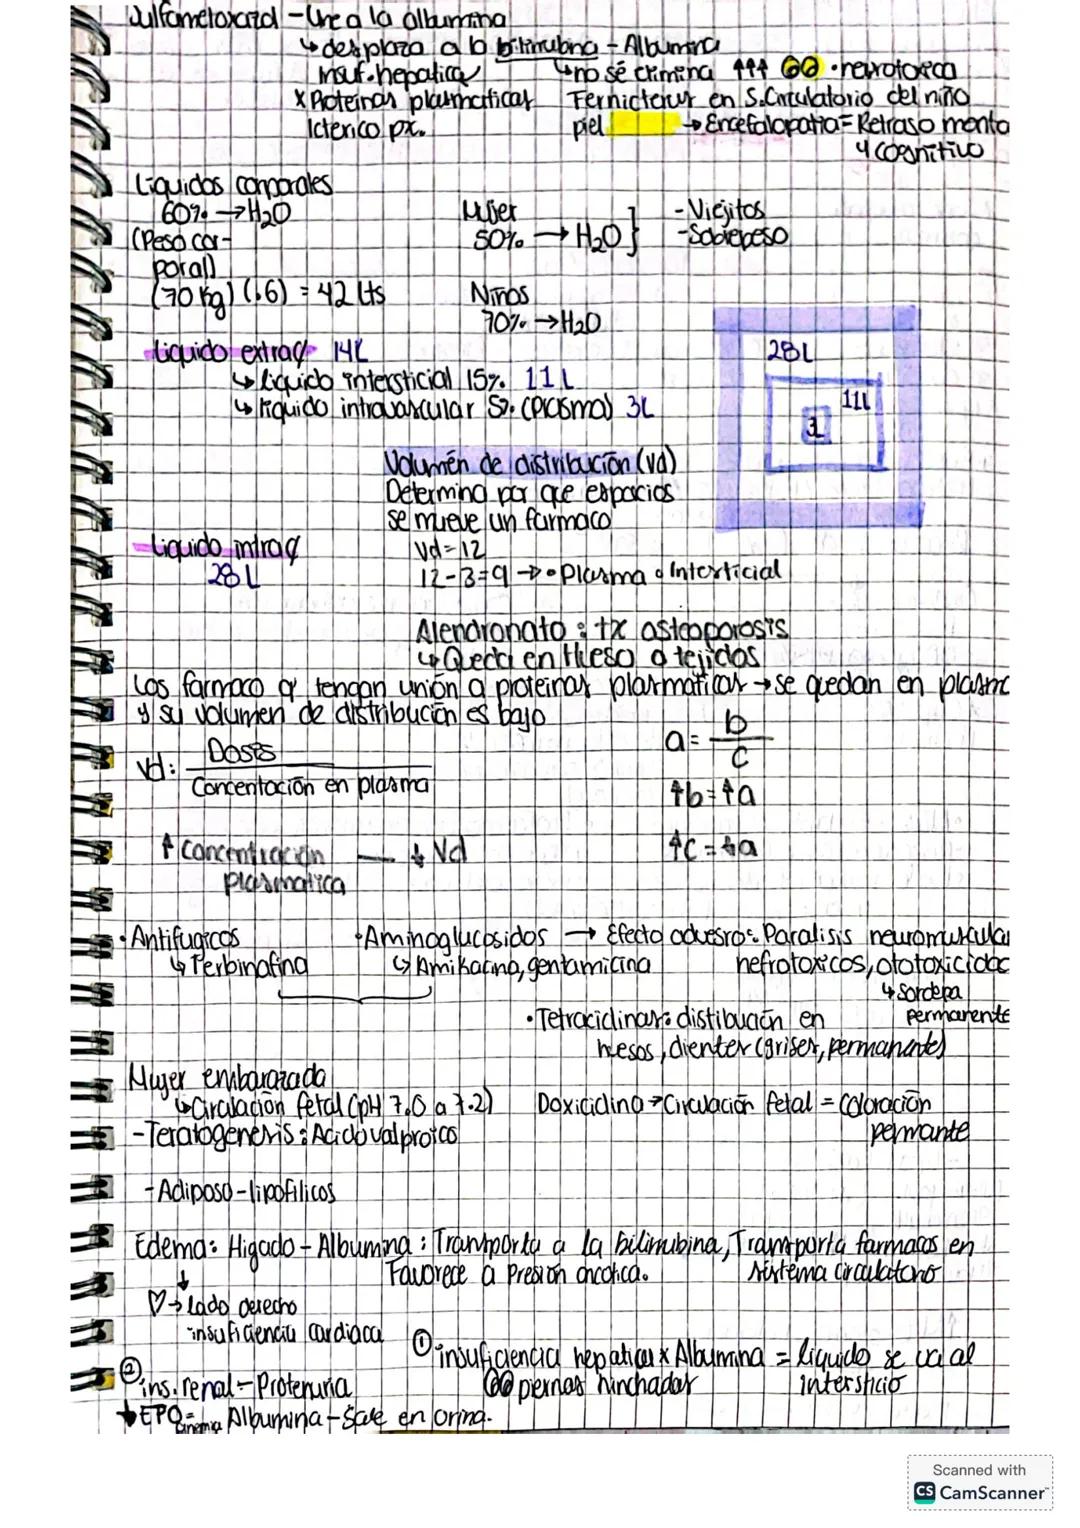 Sulfametoxazol - Une a la albumina
↳ desplaza a la bilirrubina - Albumina
insuf. hepatica ↳ no sé elimina ↑↑↑ · neurotoxica
x Proteinas plasmaticas Fernicterus en S. Circulatorio del niño
Icterico px. piel → Encefalopatia = Retraso menta
y cognitivo
Liquidos corporales
60% → H₂O Mujer - Viejitos
(Peso cor- 50% → H₂O } - Sobrepeso
poral)
(70 kg) (.6) = 42 Lts Niños
70% → H₂O
liquido extra¢ 14L 28L
↳ liquido intersticial 15% 11L 11L
↳ liquido intravascular 5% (plasma) 3L 3L
Volumen de distribución (Vd)
Determina por que espacios
se mueve un farmaco
liquido intra¢ Vd = 12
28 L 12-3=9 → • Plasma • Intersticial
Alendronato : tx osteoporosis
↳ Queda en Hueso o tejidos
Los farmaco q' tengan unión a proteinas plasmaticas → se quedan en plasm
y su volumen de distribución es bajo
Vd: Dosis a = b
Concentación en plasma c
↑b = ↑a
↑ Concentración — ↓ Vd ↑c = ↓a
plasmatica
· Antifugicos · Aminoglucosidos → Efecto advesro: Paralisis neuromuscula
↳ Terbinafina ↳ Amikacina, gentamicina nefrotoxicos, ototoxicidac
↳ Sordera
· Tetraciclinas: distibuación en permanente
huesos, dientes (grises, permanantes)
Mujer embarazada
↳ Circulación fetal (pH 7.0 a 7.2) Doxiciclina → Circulación fetal = Coloración
- Teratogenesis : Acido valproico permante
- Adiposo - lipofilicos
Edema: Higado - Albumina : Transporta a la bilirrubina, Transporta farmacos en
↓ Favorece a Presión oncotica. sistema circulatorio
♡ → lado derecho
insuficiencia cardiaca
① insuficiencia hepatica x Albumina = liquido se va al
② ins. renal - Protenuria piernas hinchadas intersticio
↓ EPO = anemia Albumina - Sale en orina.
Scanned with
CS CamScanner